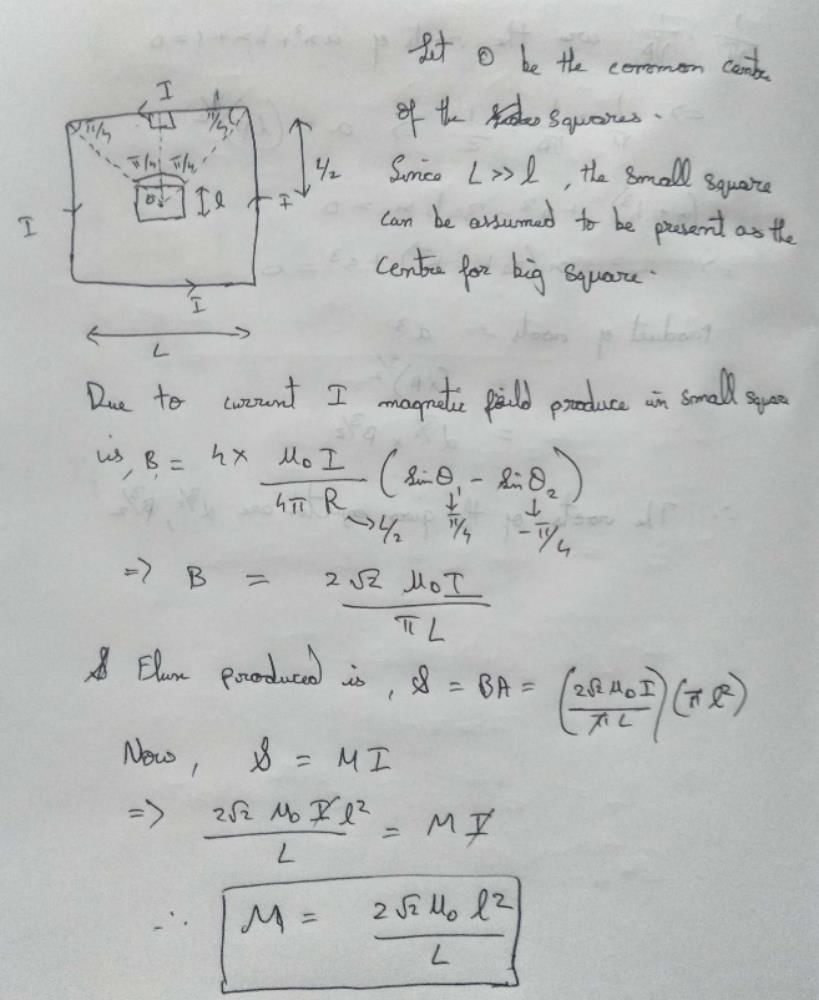 Let O be the common centre
of the squares.
Since L >> l, the small square
can be assumed to be present as the
centre for big square.
I
π/4
π/4
π/4 π/4
L/2
O
l
I
I
I
L
Due to current I magnetic feild produce in small square
is, B = 4 × μ₀I / 4πR (sinθ₁ - sinθ₂)
→ L/2 ↓ π/4 ↓ -π/4
=> B = 2√2 μ₀I / πL
Flux produced is, φ = BA = (2√2 μ₀I / πL)(πl²)
Now, φ = MI
=> 2√2 μ₀ I l² / L = M I
∴ M = 2√2 μ₀ l² / L